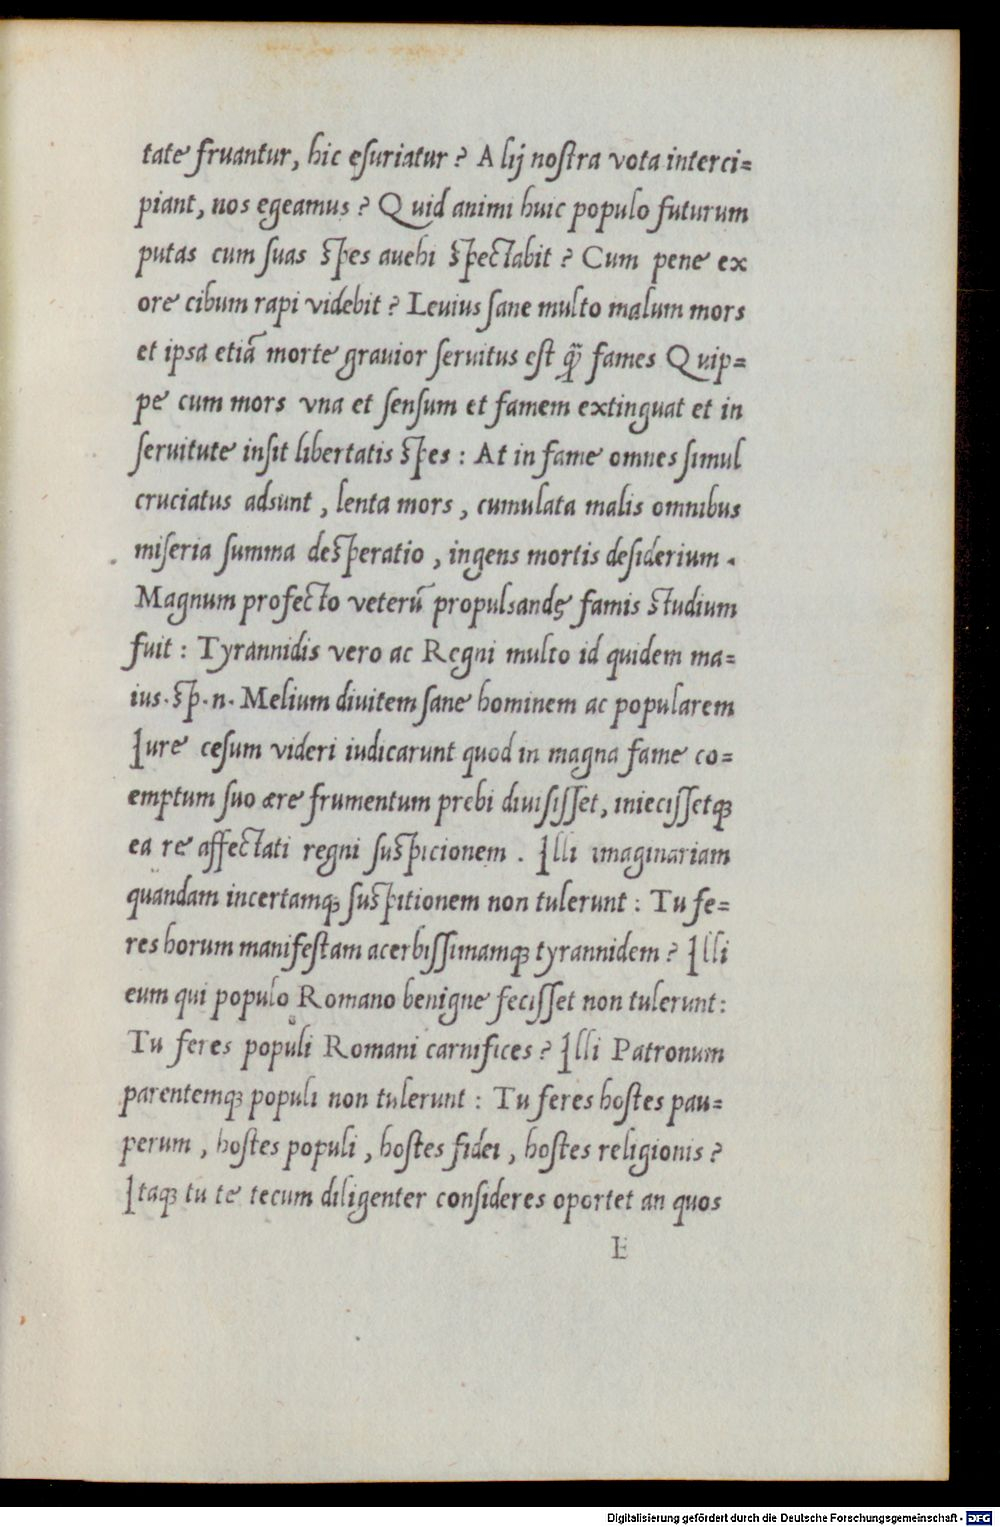 tate fruantur, hic eſuriatur ? A lij noſtra vota interci=
piant, nos egeamus ? Q uid animi huic populo futurum
putas cum ſuas ſpes auehi ſpectabit ? Cum pene ex
ore cibum rapi videbit ? Leuius ſane multo malum mors
et ipsa etiã morte grauior ſeruitus eſt q̃ȝ fames Q uip=
pe cum mors vna et ſenſum et famem extinguat et in
ſeruitute inſit libertatis ſpes : At in fame omnes ſimul
cruciatus adsunt , lenta mors , cumulata malis omnibus
miſeria ſumma deſperatio , ingens mortis deſiderium .
Magnum profecto veterũ propulsandę famis ſtudium
fuit : Tyrannidis vero ac Regni multo id quidem ma=
ius. ſp. n. Melium diuitem ſane hominem ac popularem
Iure ceſum videri iudicarunt quod in magna fame co=
emptum ſuo ære frumentum prebi diuiſiſſet, inieciſſetqȝ
ea re affectati regni ſuſpicionem . Illi imaginariam
quandam incertamqȝ ſuſpitionem non tulerunt : Tu fe=
res horum manifeſtam acerbiſſimamqȝ tyrannidem ? Illi
eum qui populo Romano benigne feciſſet non tulerunt :
Tu feres populi Romani carnifices ? Illi Patronum
parentemqȝ populi non tulerunt : Tu feres hoſtes pau=
perum , hoſtes populi , hoſtes fidei , hoſtes religionis ?
Itaqȝ tu te tecum diligenter conſideres oportet an quos
E
Digitalisierung gefördert durch die Deutsche Forschungsgemeinschaft - DFG